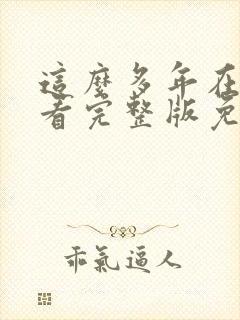 這麼多年在
看完整版免
乖氣逼人